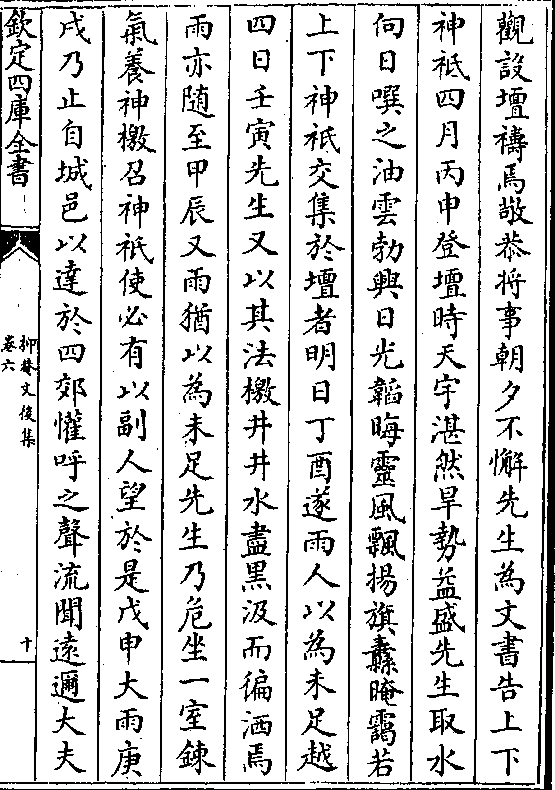 觀設壇禱焉敬恭将事朝夕不懈先生為文書告上下
神祇四月丙申登壇時天宇湛然旱勢益盛先生取水
向日噀之油雲勃興日光韜晦靈風飄揚旗纛晻靄若
上下神祇交集於壇者明日丁酉遂雨人以為未足越
四日壬寅先生又以其法檄井井水盡黒汲而徧洒焉
雨亦随至甲辰又雨猶以為未足先生乃危坐一室鍊
氣養神檄召神祇使必有以副人望於是戊申大雨庚
戌乃止自城邑以達於四郊懽呼之聲流聞遠邇大夫
欽定四庫全書
卷六
文俟集
十